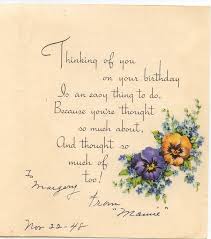 Thinking of you
on your birthday
Is an easy thing to do,
Because you're thought
so much about,
And thought so
much of
too!
To
Margery
From
"Mamie"
Nov 22-48